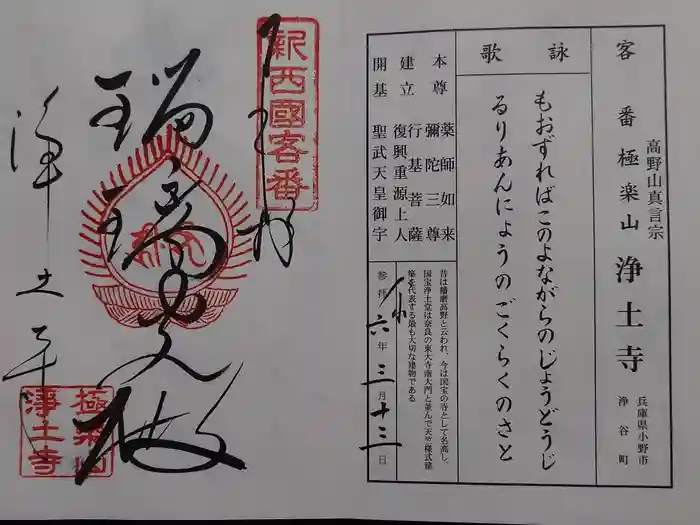 客番
高野山真言宗
極楽山 浄土寺
兵庫県小野市
浄谷町
詠歌
もおずればこのよながらのじょうどうじ
るりあんにょうのごくらくのさと
本尊 薬師如来
彌陀三尊
建立 行基菩薩
復興重源上人
開基 聖武天皇御宇
昔は播磨高野と云われ、今は国宝の寺として名高し、
国宝浄土堂は奈良の東大寺南大門と並んで天竺様式建
築を代表する最も大切な建物である
参拝 令和六年三月十三日
新西國客番
奉拝
瑠璃光殿
浄土寺
極楽山
淨土寺